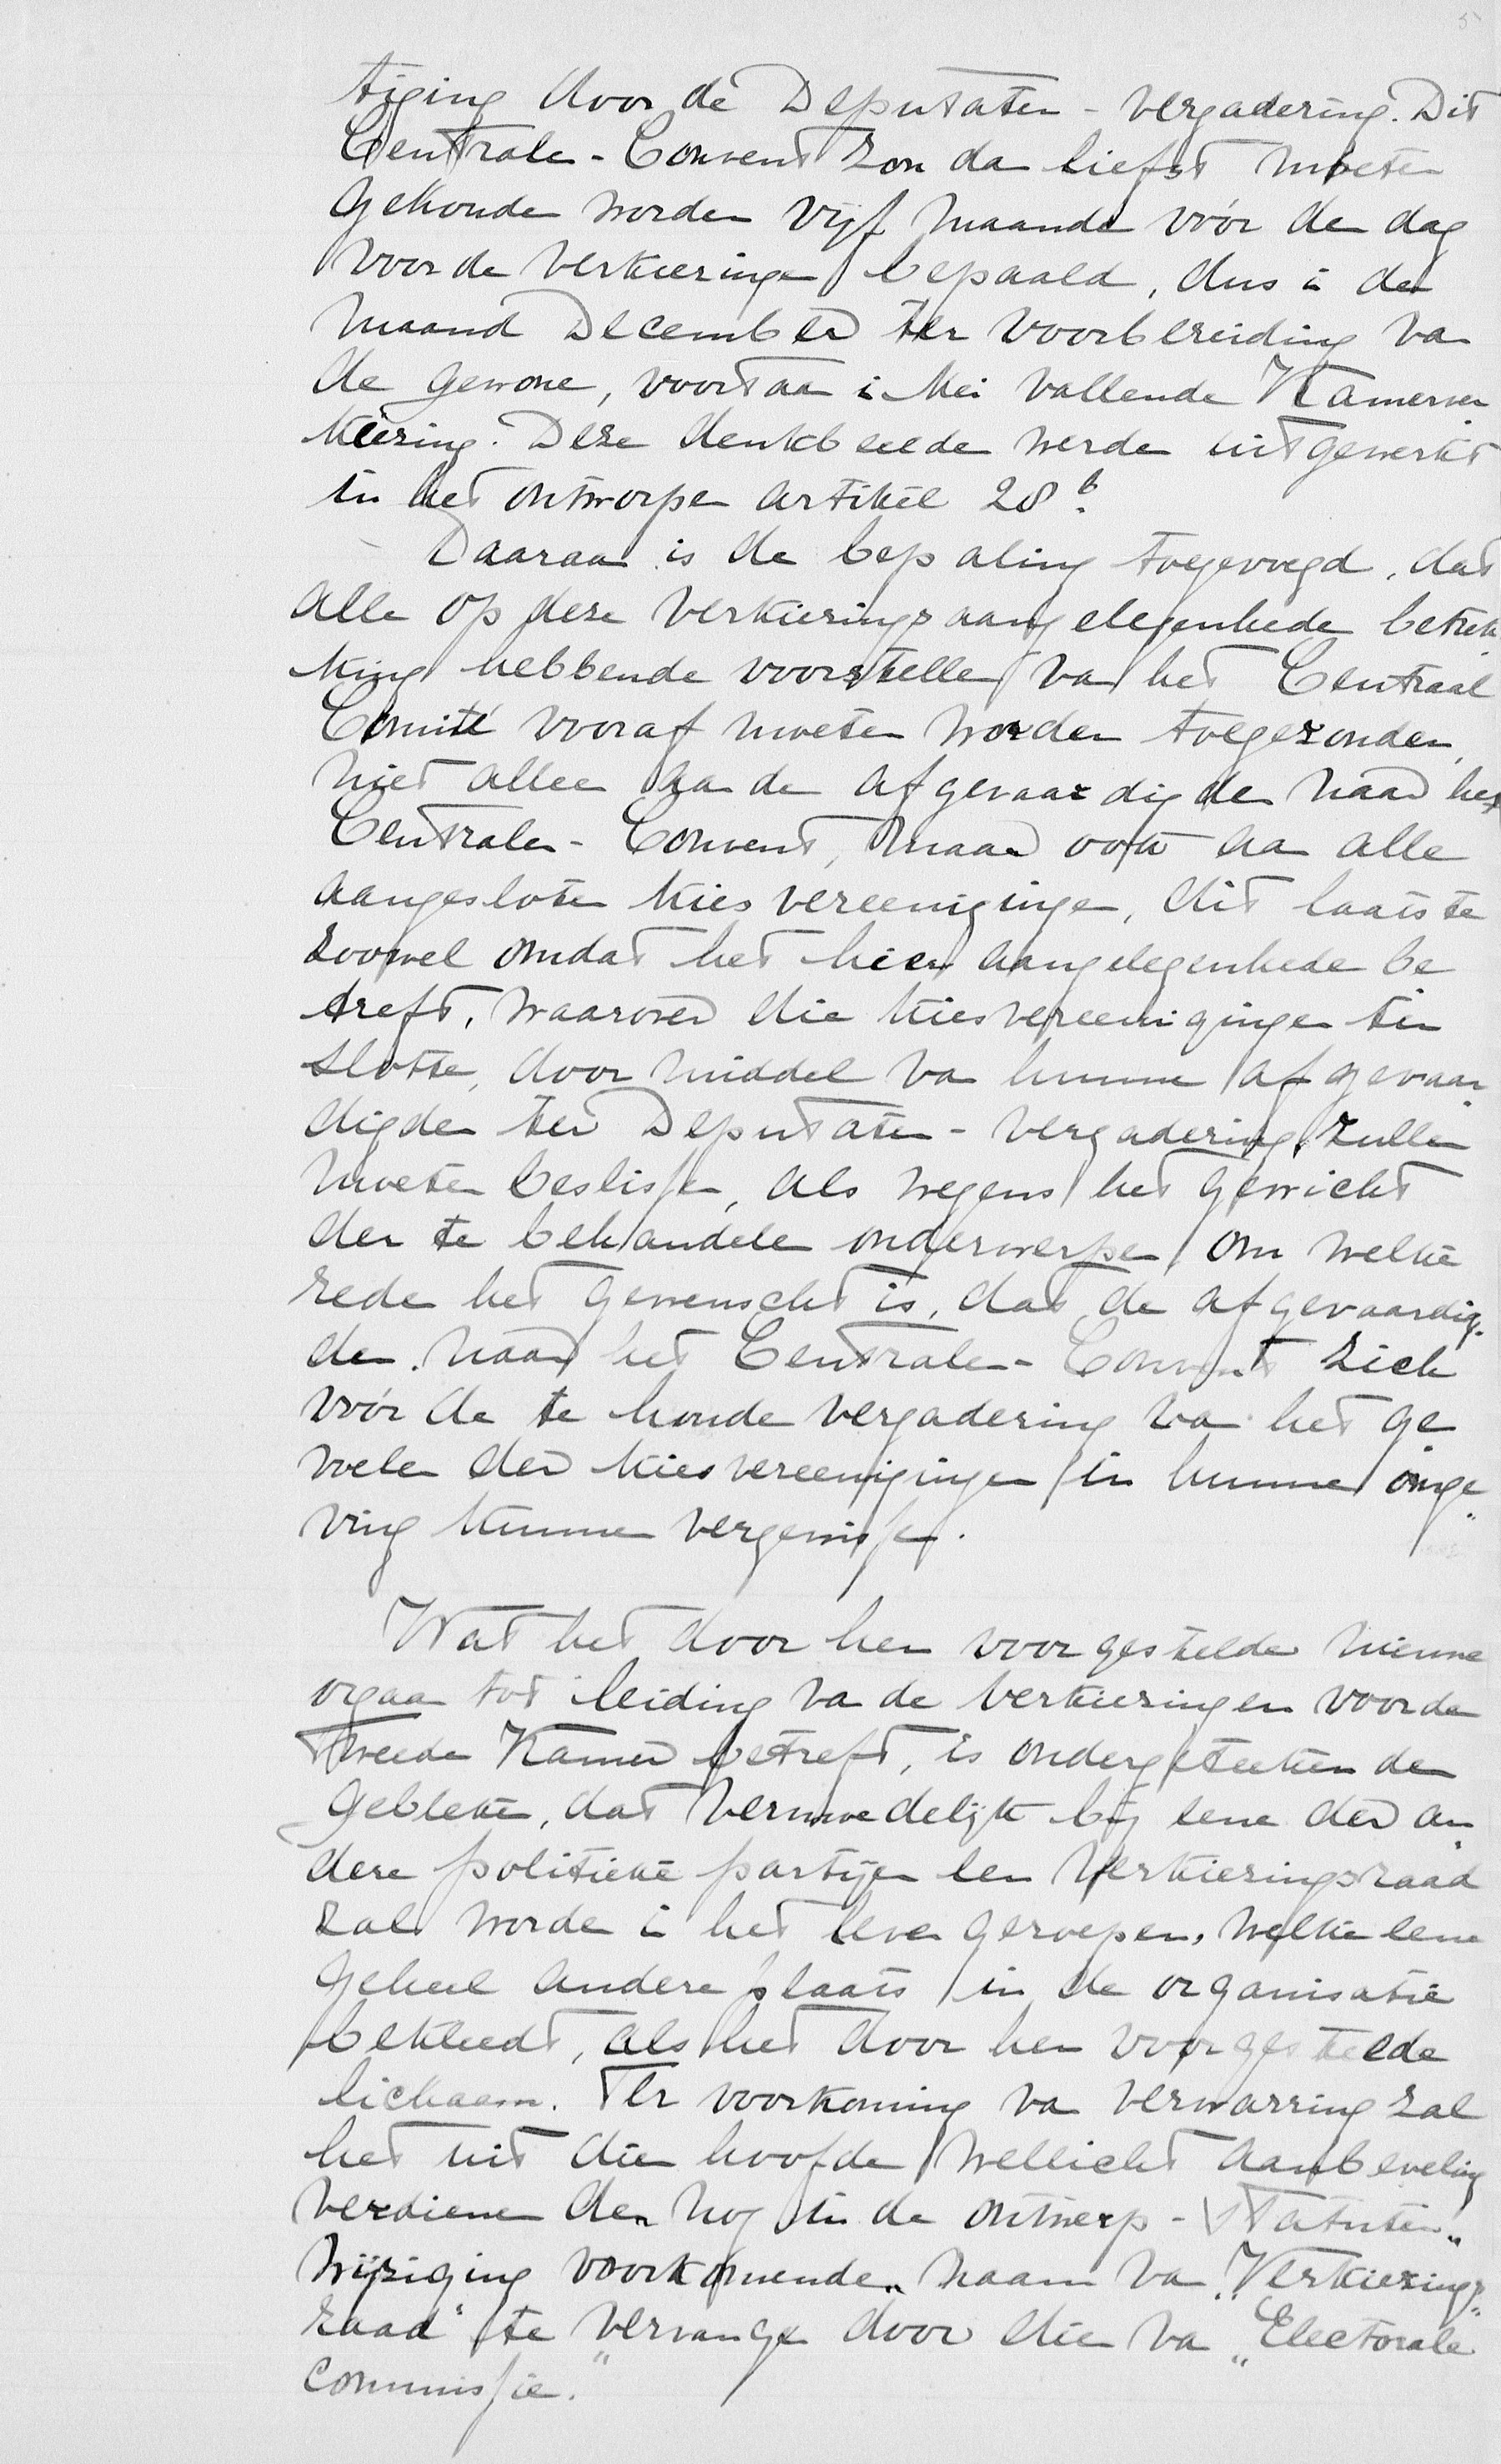 5
tiging door de Deputaten-vergadering. Dit
Centrale-Convent zou dan liefst moeten
gehouden worden vijf maanden vóór den dag
voor de verkiezingen bepaald, dus in de
maand December ter voorbereiding van
de gewone, voortaan in Mei vallende Kamerver
kiezing. Deze denkbeelden werden uitgewerkt
in het ontworpen artikel 28b.
Daaraan is de bepaling toegevoegd, dat
alle op deze verkiezingsaangelegenheden betrek
king hebbende voorstellen van het Centraal
Comité vooraf moeten worden toegezonden,
niet alleen aan de afgevaardigden naar het
Centrale-Convent, maar ook aan alle
aangesloten kiesvereenigingen, dit laatste
zoowel omdat het hier aangelegenheden be
treft, waarover die kiesvereenigingen ten
slotte, door middel van hunne afgevaar
digden ter Deputaten-vergadering, zullen
moeten beslissen, als wegens het gewicht
der te behandelen onderwerpen om welke
rede het gewenscht is, dat de afgevaardig
den naar het Centrale-Convent zich
vóór de te houden vergadering van het ge
voelen der kiesvereenigingen in hunne omge
ving kunnen vergewissen.
Wat het door hen voorgestelde nieuwe
orgaan tot leiding van de verkiezingen voor de
Tweede Kamer betreft, is ondergeteekenden
gebleken, dat vermoedelijk bij eene der an
dere politieke partijen een Verkiezingsraad
zal worden in het leven geroepen, welke eene
geheel andere plaats in de organisatie
bekleedt, als het door hen voorgestelde
lichaam. Ter voorkoming van verwarring zal
het uit dien hoofde wellicht aanbeveling
verdienen den nog in de ontwerp-Statuten
wijziging voorkomenden naam van „Verkiezings
raad" te vervangen door die van „Electorale
Commissie.